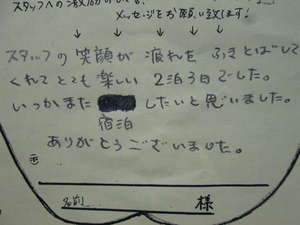 スタッフへの激励
メッセージをお願い致します!
スタッフの笑顔が疲れをふきとばして
くれてとても楽しい2泊3日でした。
いつかまた したいと思いました。
宿泊
ありがとうございました。
名前 様